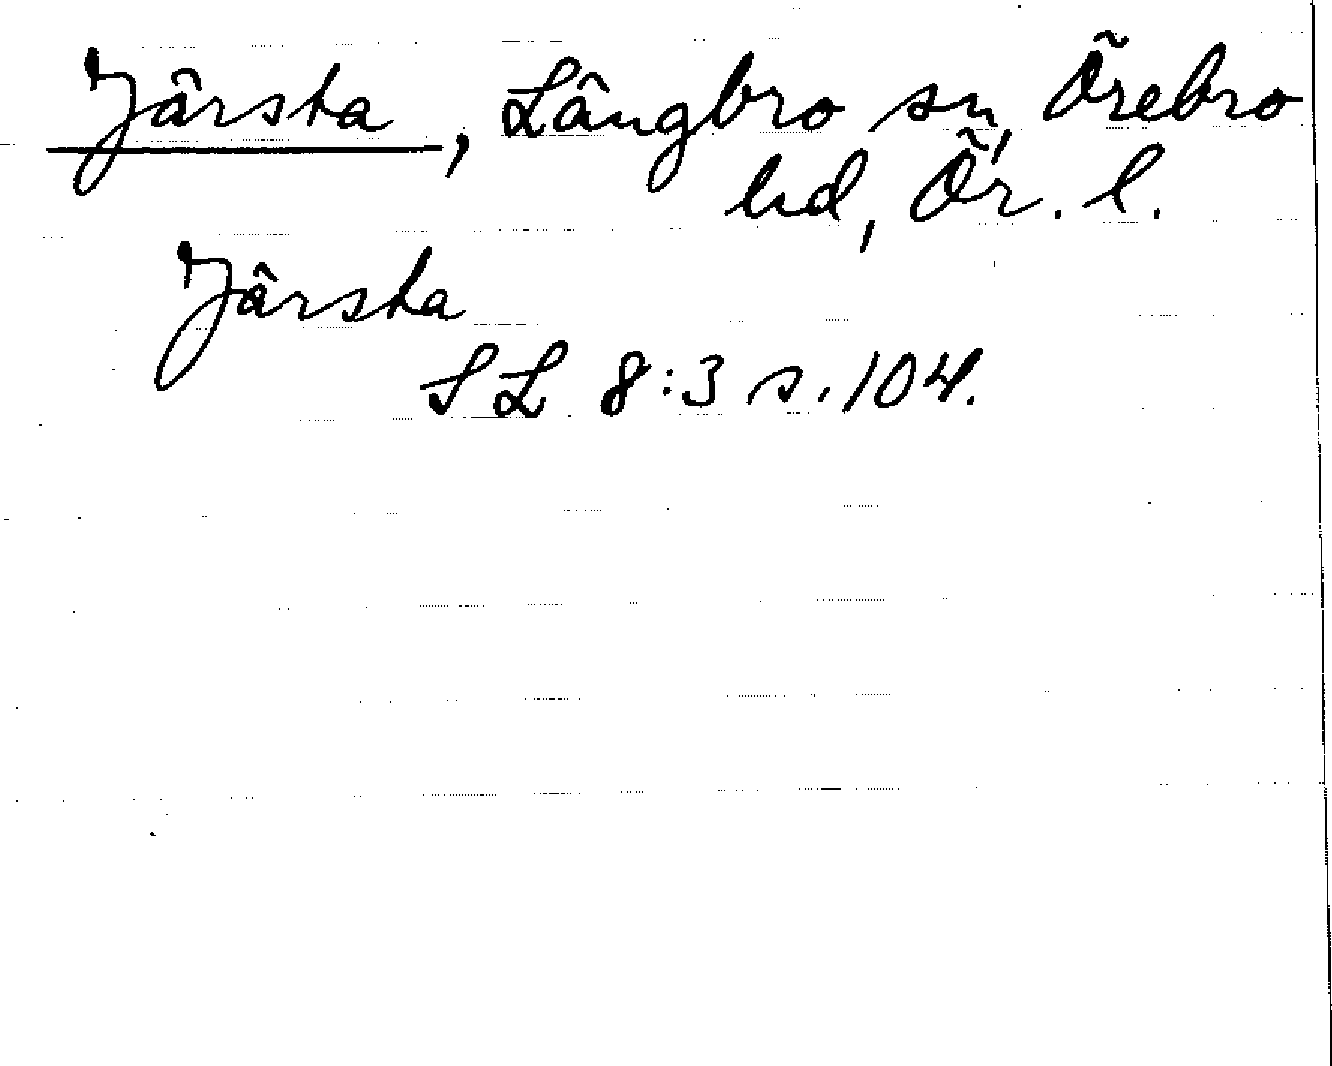 Jârsta, Lângbro sn, Örebro
hd, Ör. l.
Jârsta
SL 8:3 s. 104.